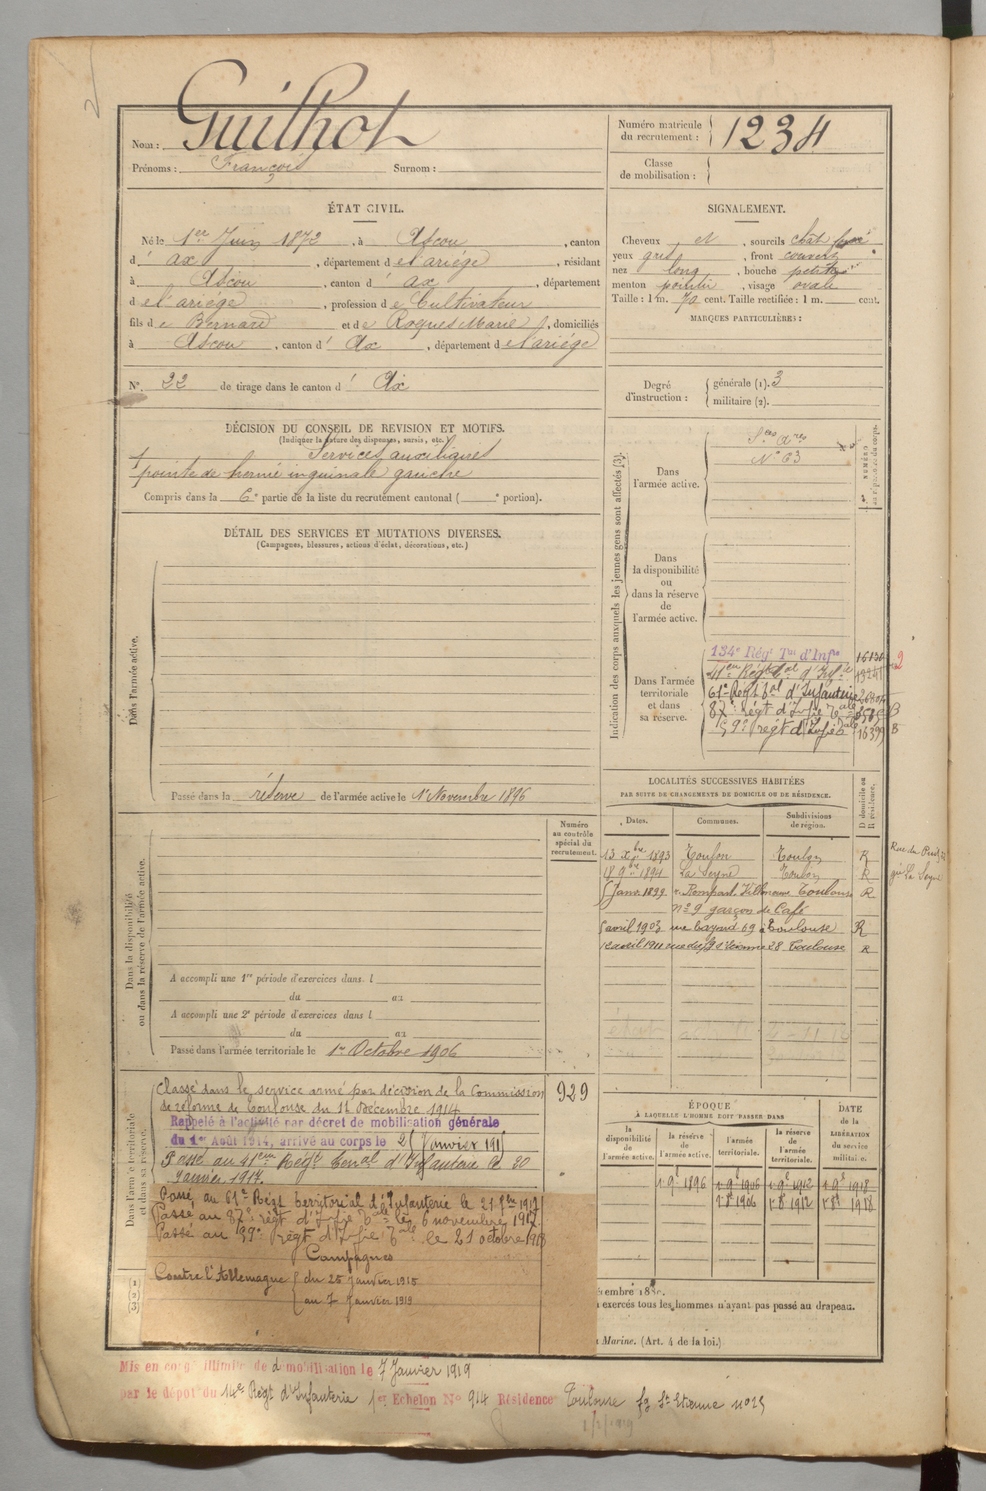 Nom : Guilhot
Prénoms : François Surnom :
Numéro matricule
du recrutement : 1234
Classe
de mobilisation :
ÉTAT CIVIL.
Né le 1er Juin 1872, à Ascou, canton
d' ax, département de l'ariége, résidant
à Ascou, canton d' ax, département
de l'ariége, profession de Cultivateur
fils de Bernard et de Roques Marie, domiciliés
à Ascou, canton d' Ax, département de l'ariége
N° 22 de tirage dans le canton d' Ax
SIGNALEMENT.
Cheveux et, sourcils chât
yeux gris, front couvert
nez long, bouche petite
menton pointu, visage ovale
Taille : 1 m. 70 cent. Taille rectifiée : 1 m. cent.
MARQUES PARTICULIÈRES :
Degré
d'instruction :
générale (1). 3
militaire (2).
DÉCISION DU CONSEIL DE REVISION ET MOTIFS.
(Indiquer la nature des dispenses, sursis, etc.)
Services auxiliaires
pointe de hernie inguinale gauche
Compris dans la 6e partie de la liste du recrutement cantonal ( e portion).
DÉTAIL DES SERVICES ET MUTATIONS DIVERSES.
(Campagnes, blessures, actions d'éclat, décorations, etc.)
Dans l'armée active.
Passé dans la réserve de l'armée active le 1er Novembre 1896
Indication des corps auxquels les jeunes gens sont affectés (3).
NUMÉRO
au répertoire du corps.
Dans
l'armée active.
N° 63
Dans
la disponibilité
ou
dans la réserve
de
l'armée active.
Dans l'armée
territoriale
et dans
sa réserve.
134e Régt Tal d'Infie 16130
41eme Régt tal d'Infie
61e Régt tal d'Infanterie
87e Régt d'Infie Tale
59e régt d'Infie Tale 16399 B
LOCALITÉS SUCCESSIVES HABITÉES
PAR SUITE DE CHANGEMENTS DE DOMICILE OU DE RÉSIDENCE.
Dates. Communes. Subdivisions de région. D domicile ou R résidence.
13 Xbre 1893 Toulon Toulon R
18 9bre 1894 La Seyne Toulon R
5 Janv. 1899 r. Rempart Villeneuve Toulouse R
n° 9 garçon de Café
5 avril 1903 rue Bayard 69 à Toulouse R
avril 1911 28 Toulouse R
La Seyne
Dans la disponibilité
ou dans la réserve de l'armée active.
Numéro
au contrôle
spécial du
recrutement.
A accompli une 1re période d'exercices dans l
du au
A accompli une 2e période d'exercices dans l
du au
Passé dans l'armée territoriale le 1er Octobre 1906
Dans l'armée territoriale
et dans sa réserve.
Classé dans le service armé par décision de la Commission
de réforme de Toulouse du 11 Décembre 1914
929
Rappelé à l'activité par décret de mobilisation générale
du 1er Août 1914, arrivé au corps le 25 Janvier 1915
Passé au 41eme Régt Teral d'Infanterie le 20
Janvier 1917.
Passé au 61e Régt territorial d'Infanterie le 21 1917
Passé au 87e régt d'Infie Tale le 6 novembre 1917.
Passé au 59e régt d'Infie Tale le 21 octobre 1918
Campagnes
Contre l'Allemagne du 25 Janvier 1915
au 7 Janvier 1919
ÉPOQUE
À LAQUELLE L'HOMME DOIT PASSER DANS
la disponibilité de l'armée active.
la réserve de l'armée active.
l'armée territoriale.
la réserve de l'armée territoriale.
DATE de la LIBÉRATION du service militaire.
1 9e 1896 1 9e 1906 1 9e 1912 1 9e 1918
1 8e 1906 1 8e 1912 1 8e 1918
exercés tous les hommes n'ayant pas passé au drapeau.
Marine. (Art. 4 de la loi.)
Mis en congé illimité de démobilisation le 7 Janvier 1919
par le dépôt du 14e Régt d'Infanterie 1er Echelon N° 914 Résidence Toulouse fg St Etienne n° 25